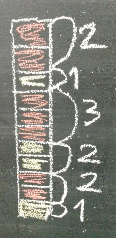 2
1
3
2
2
1